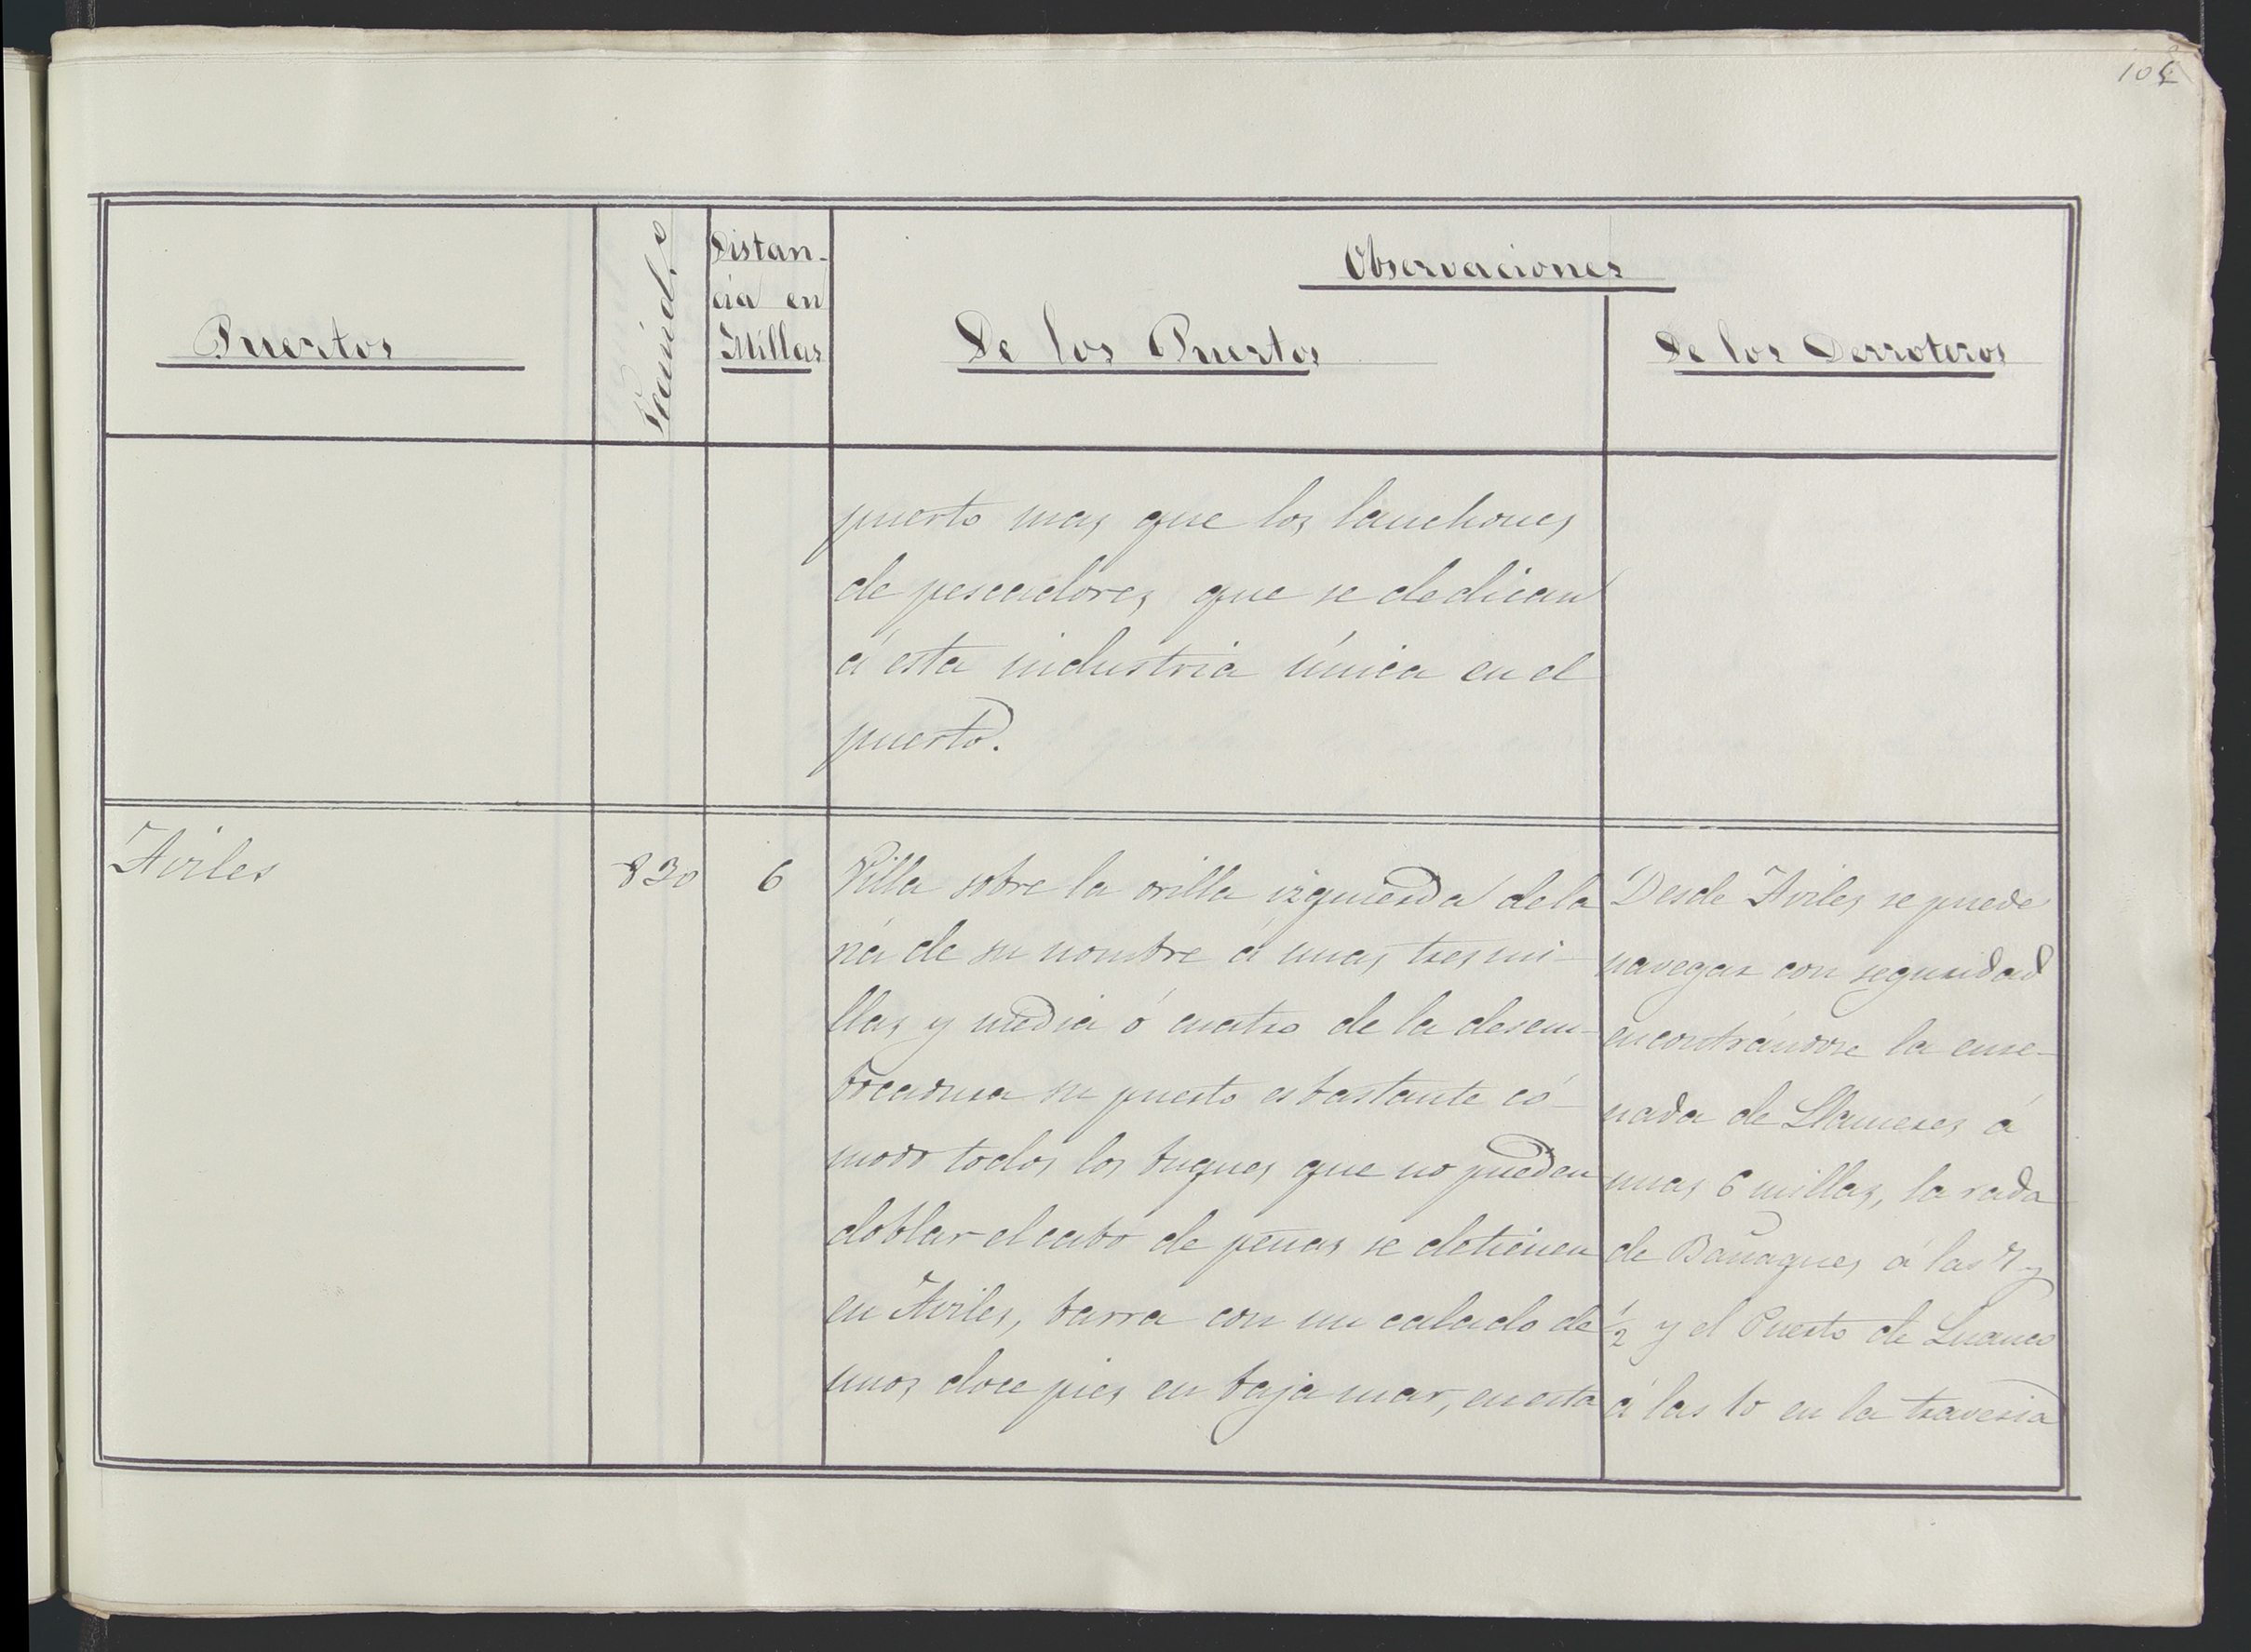 Puertos
Vecind.o
Distan-
cia en
Millas
Observaciones
De los Puertos
De los Derroteros
puerto mas que los lanchones
de pescadores que se dedican
á esta industria única en el
puerto.
Aviles
830
6
Villa sobre la orilla izquierda de la
ria de su nombre á unas tres mi-
llas y media ó cuatro de la desem-
bocadura su puerto es bastante có-
modo todos los buques que no pueden
doblar el cabo de peñas se detienen
en Aviles, barra con un calado de
unos doce pies en baja mar, en esta
Desde Aviles se puede
navegar con seguridad
encontrándose la ense-
nada de Llameres á
unas 6 millas, la rada
de Bañagues á las 9 y
1/2 y el Puerto de Luanco
á las 10 en la travesia